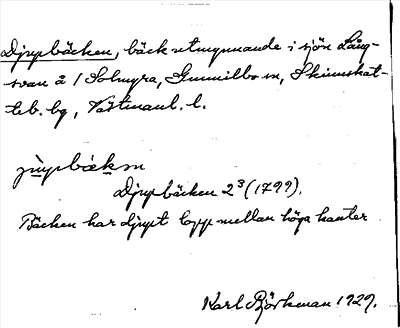 Djupbäcken, bäck utmynnande i sjön Lång-
svan å 1 Solmyra, Gunnilbo sn, Skinnskat-
teb. bg, Västmanl. l.
jùpbäkən
Djupbäcken 2³ (1799).
Bäcken har djupt lopp mellan höga kanter
Karl Björkman 1929.